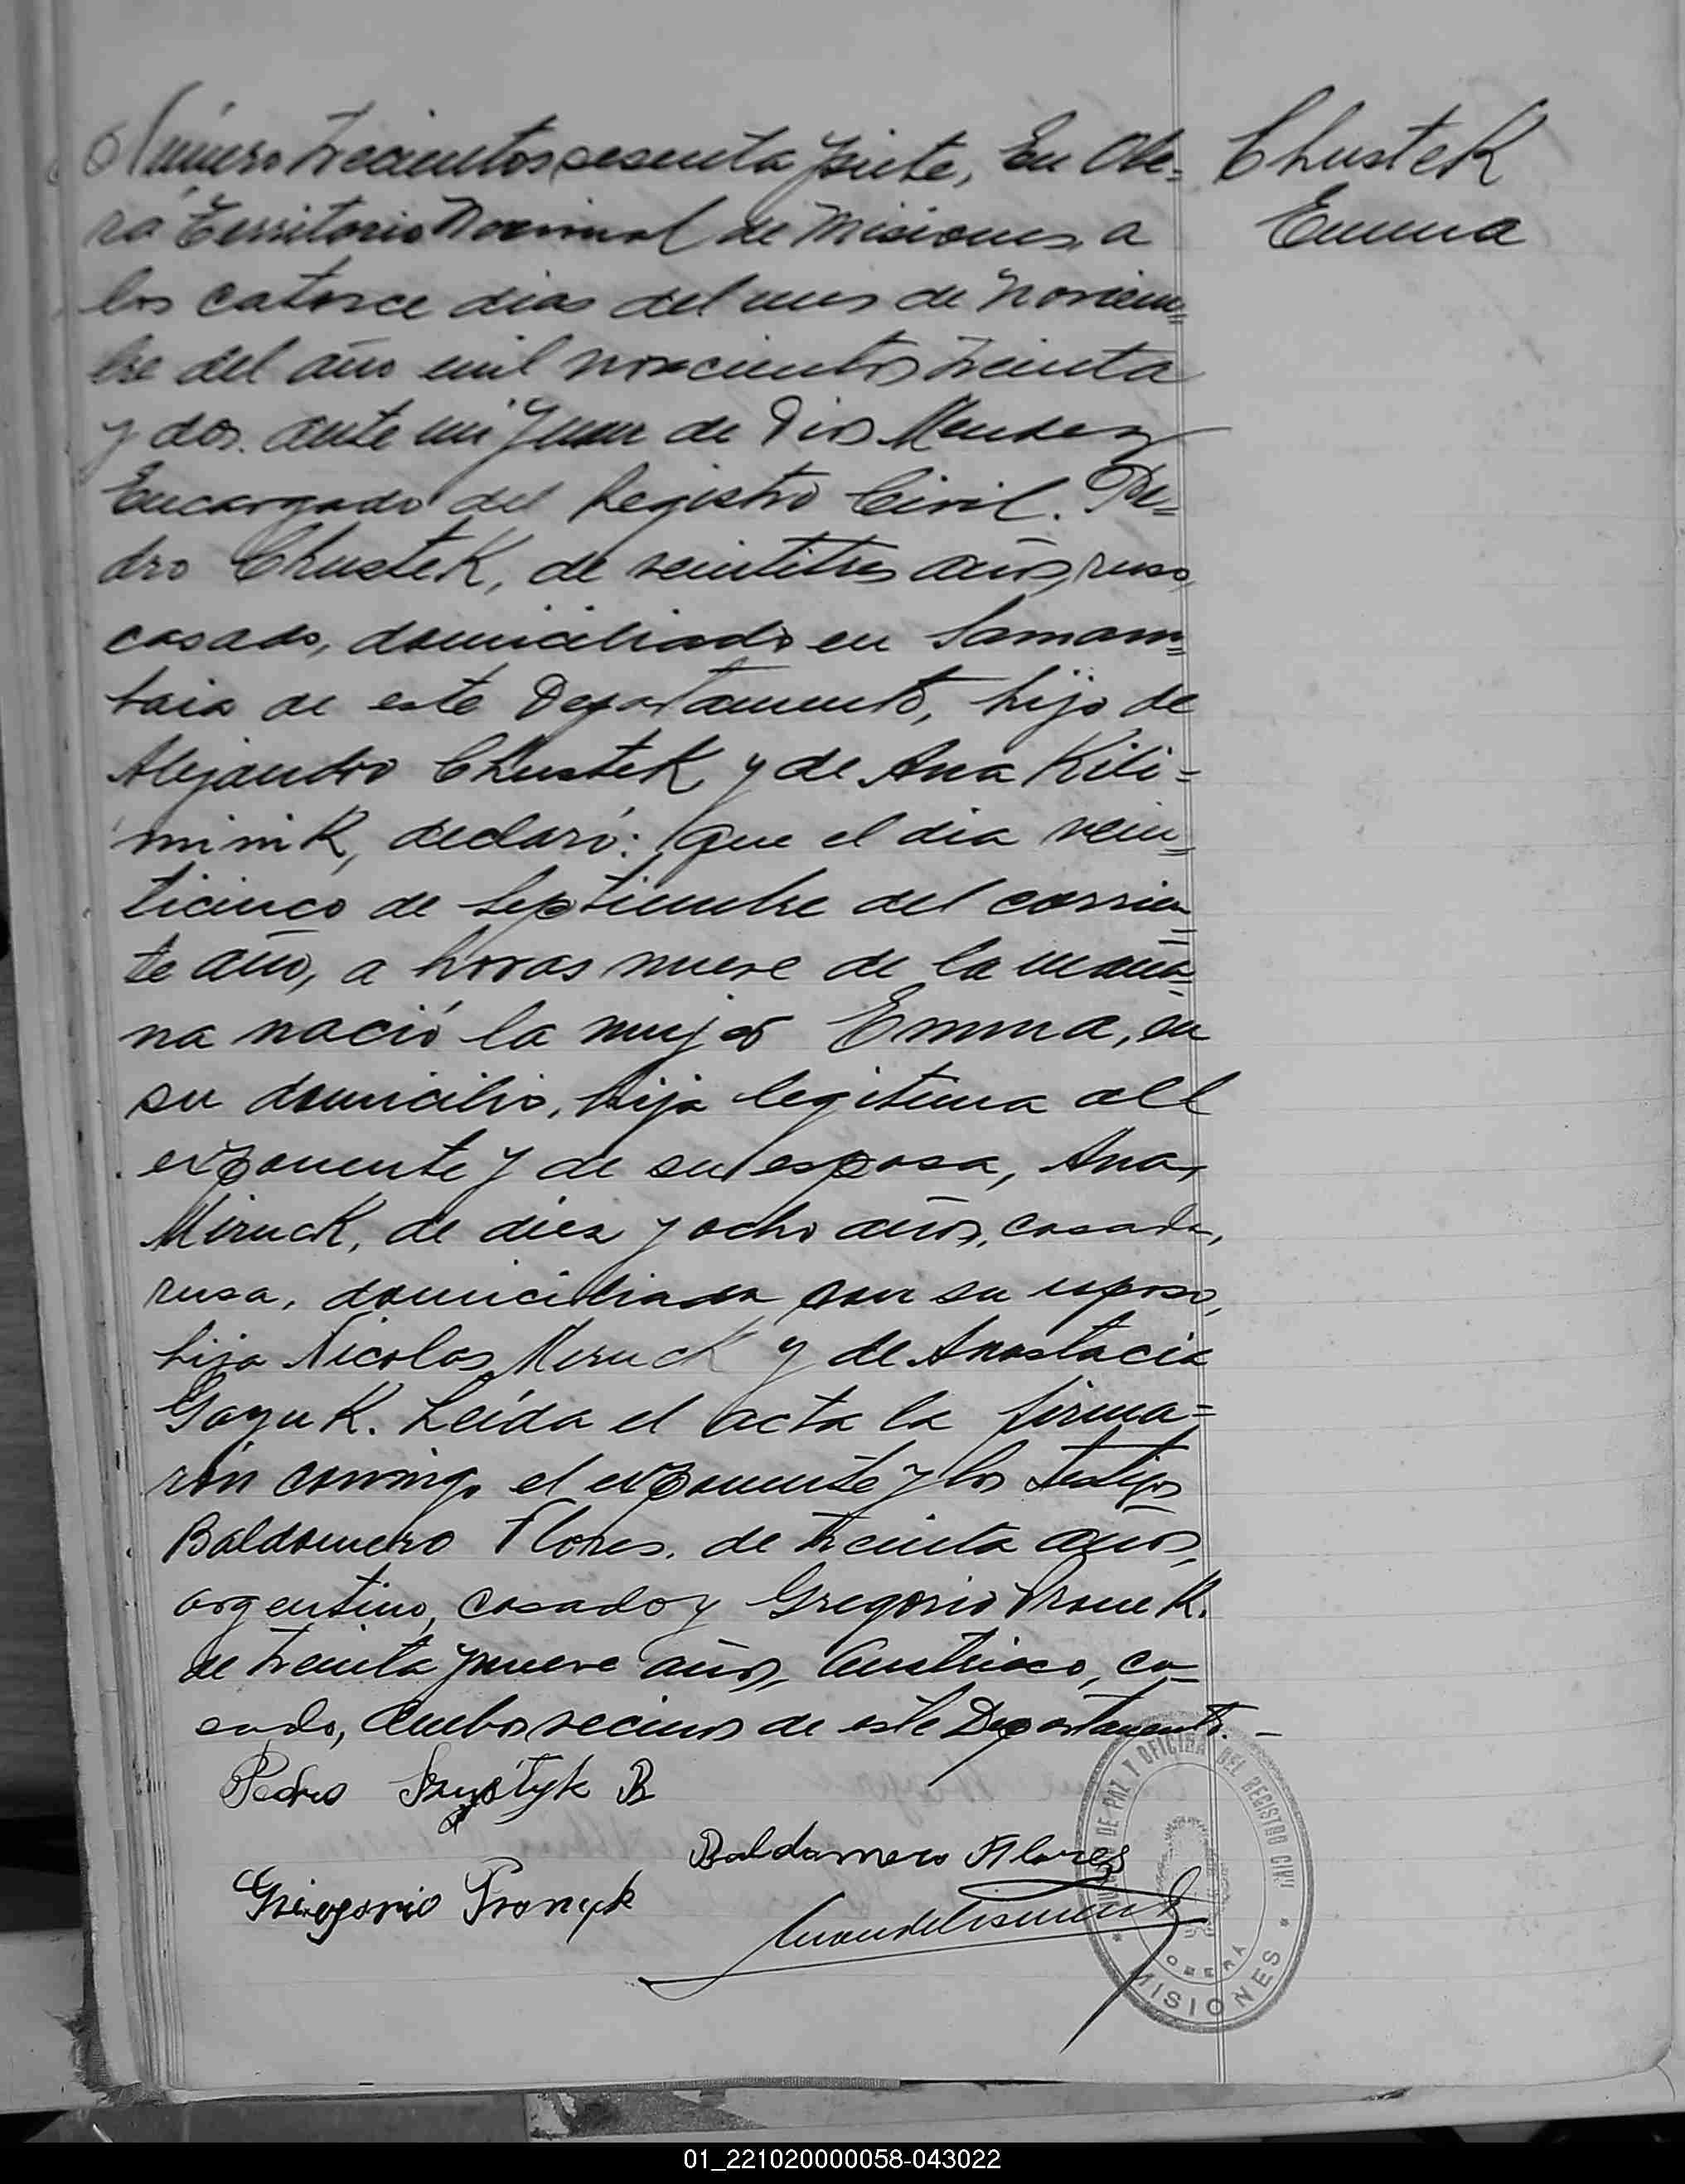 Número trecientos sesenta y siete, En Obe=
rá Territorio Nacional de Misiones, a
los catorce dias del mes de Noviem=
bre del año mil novecientos treinta
y dos. ante mi Juan de Dios Mendez
Encargado del Registro Civil. Pe=
dro Chustek, de veintitres años, ruso,
casado, domiciliado en Samam=
baia de este Departamento, hijo de
Alejandro Chustek y de Ana Kili=
minik, declaró: Que el dia vein=
ticinco de Septiembre del corrien=
te año, a horas nueve de la maña=
na nació la mujer Emma, en
su domicilio, hija legitima del
exponente y de su esposa, Ana
Miruck, de diez y ocho años, casada,
rusa, domiciliada con su esposo,
hija Nicolas Miruck y de Anastacia
Gayuk. Leída el acta la firma=
rón conmigo el exponente y los testigos
Baldomero Flores, de treinta años,
argentino, casado y Gregorio Pronek.
de treinta y nueve años, Austriaco, ca=
sado, Ambos vecinos de este Departamento. -
Chustek
Emma
Pedro
Baldomero Flores
Griegorio Pronyk
JUZGADO DE PAZ Y OFICINA DEL REGISTRO CIVIL
OBERÁ
MISIONES
01_221020000058-043022